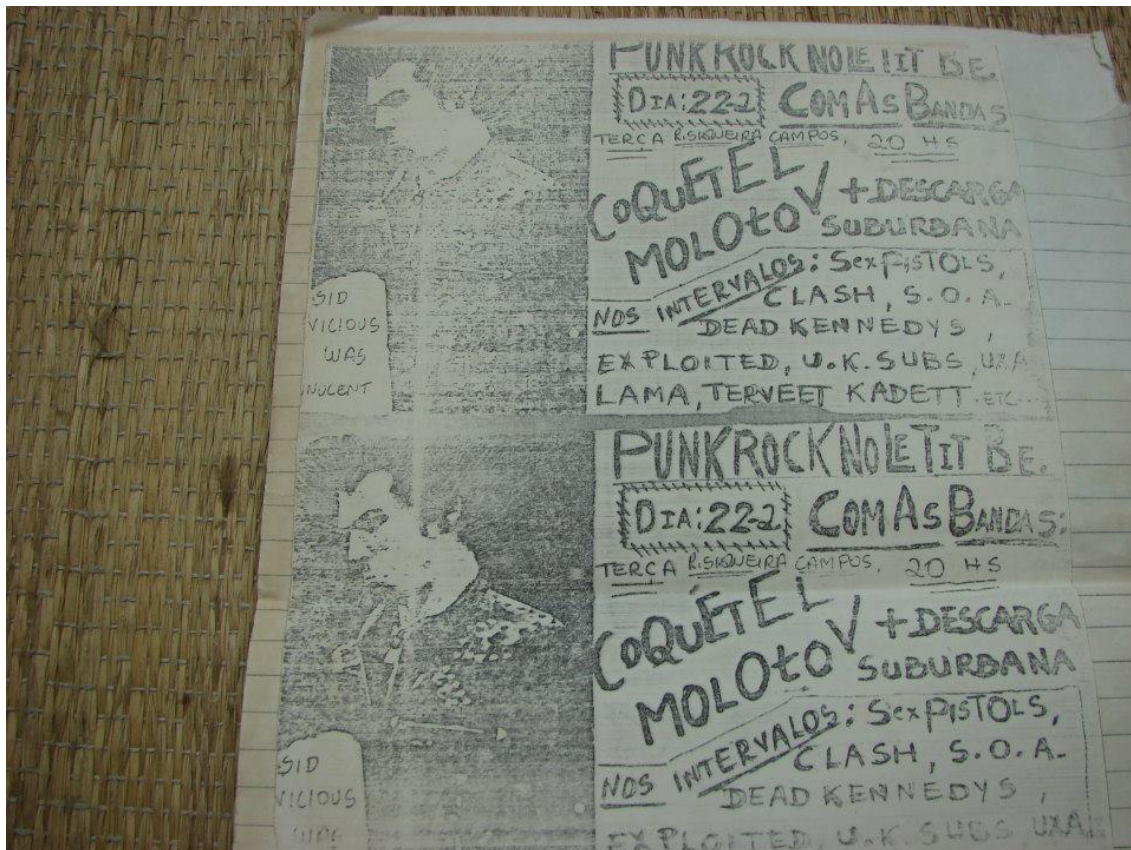 PUNK ROCK NO LE TIT BE.
DIA: 22-2 COM AS BANDAS
TERÇA R. SIQUEIRA CAMPOS, 20 HS
COQUETEL MOLOtoV + DESCARGA SUBURBANA
NOS INTERVALOS: SEX PISTOLS,
CLASH, S.O.A.
DEAD KENNEDYS,
EXPLOITED, U.K. SUBS, UXA
LAMA, TERVEET KADETT. ETC...
SID
VICIOUS
WAS
INUCENT
PUNK ROCK NO LE TIT BE.
DIA: 22-2 COM AS BANDAS:
TERÇA R. SIQUEIRA CAMPOS, 20 HS
COQUETEL MOLOtoV + DESCARGA SUBURBANA
NOS INTERVALOS: SEX PISTOLS,
CLASH, S.O.A.
DEAD KENNEDYS,
EXPLOITED, U.K SUBS UXA
SID
VICIOUS
WAS